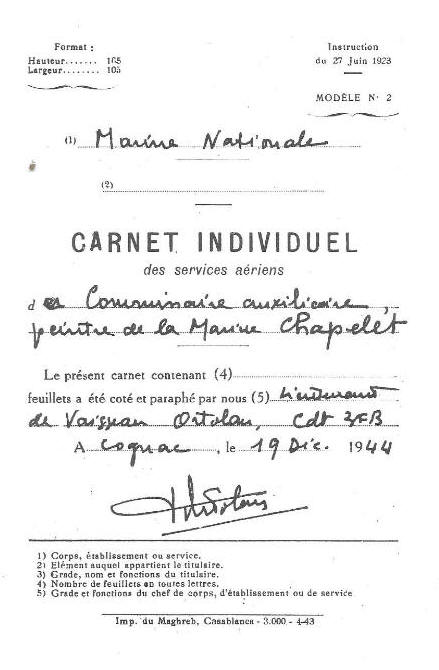 Format :
Hauteur....... 165
Largeur........ 105
Instruction
du 27 Juin 1923
MODÈLE N° 2
(1) Marine Nationale
(2)
CARNET INDIVIDUEL
des services aériens
d Commissaire auxiliaire,
peintre de la Marine Chapelet
Le présent carnet contenant (4)
feuillets a été coté et paraphé par nous (5) Lieutenant
de Vaisseau Ortolan, Cdt
A Cognac, le 19 Déc. 1944
1) Corps, établissement ou service.
2) Elément auquel appartient le titulaire.
3) Grade, nom et fonctions du titulaire.
4) Nombre de feuillets en toutes lettres.
5) Grade et fonctions du chef de corps, d'établissement ou de service
Imp. du Maghreb, Casablanca - 3.000 - 4-43